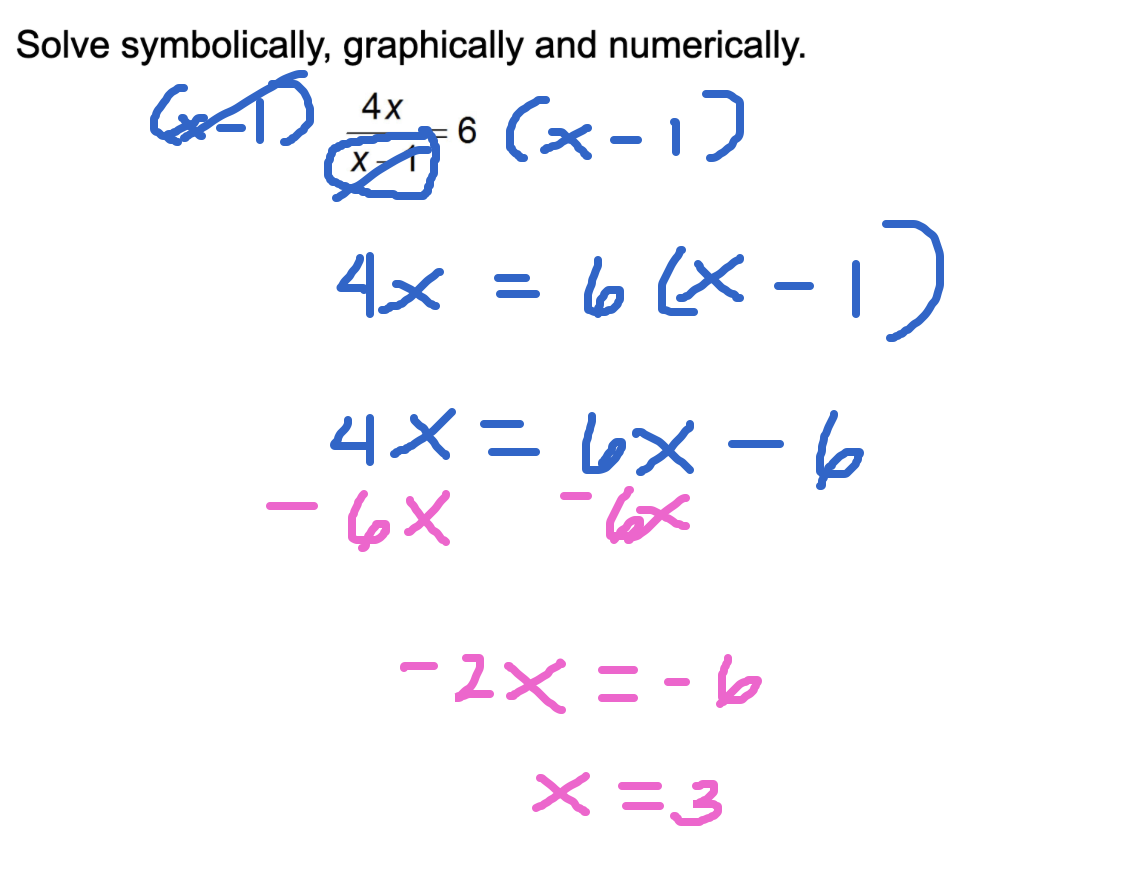 Solve symbolically, graphically and numerically.
(x-1) 4x/(x-1) = 6 (x-1)
4x = 6(x-1)
4x = 6x - 6
-6x -6x
-2x = -6
x = 3